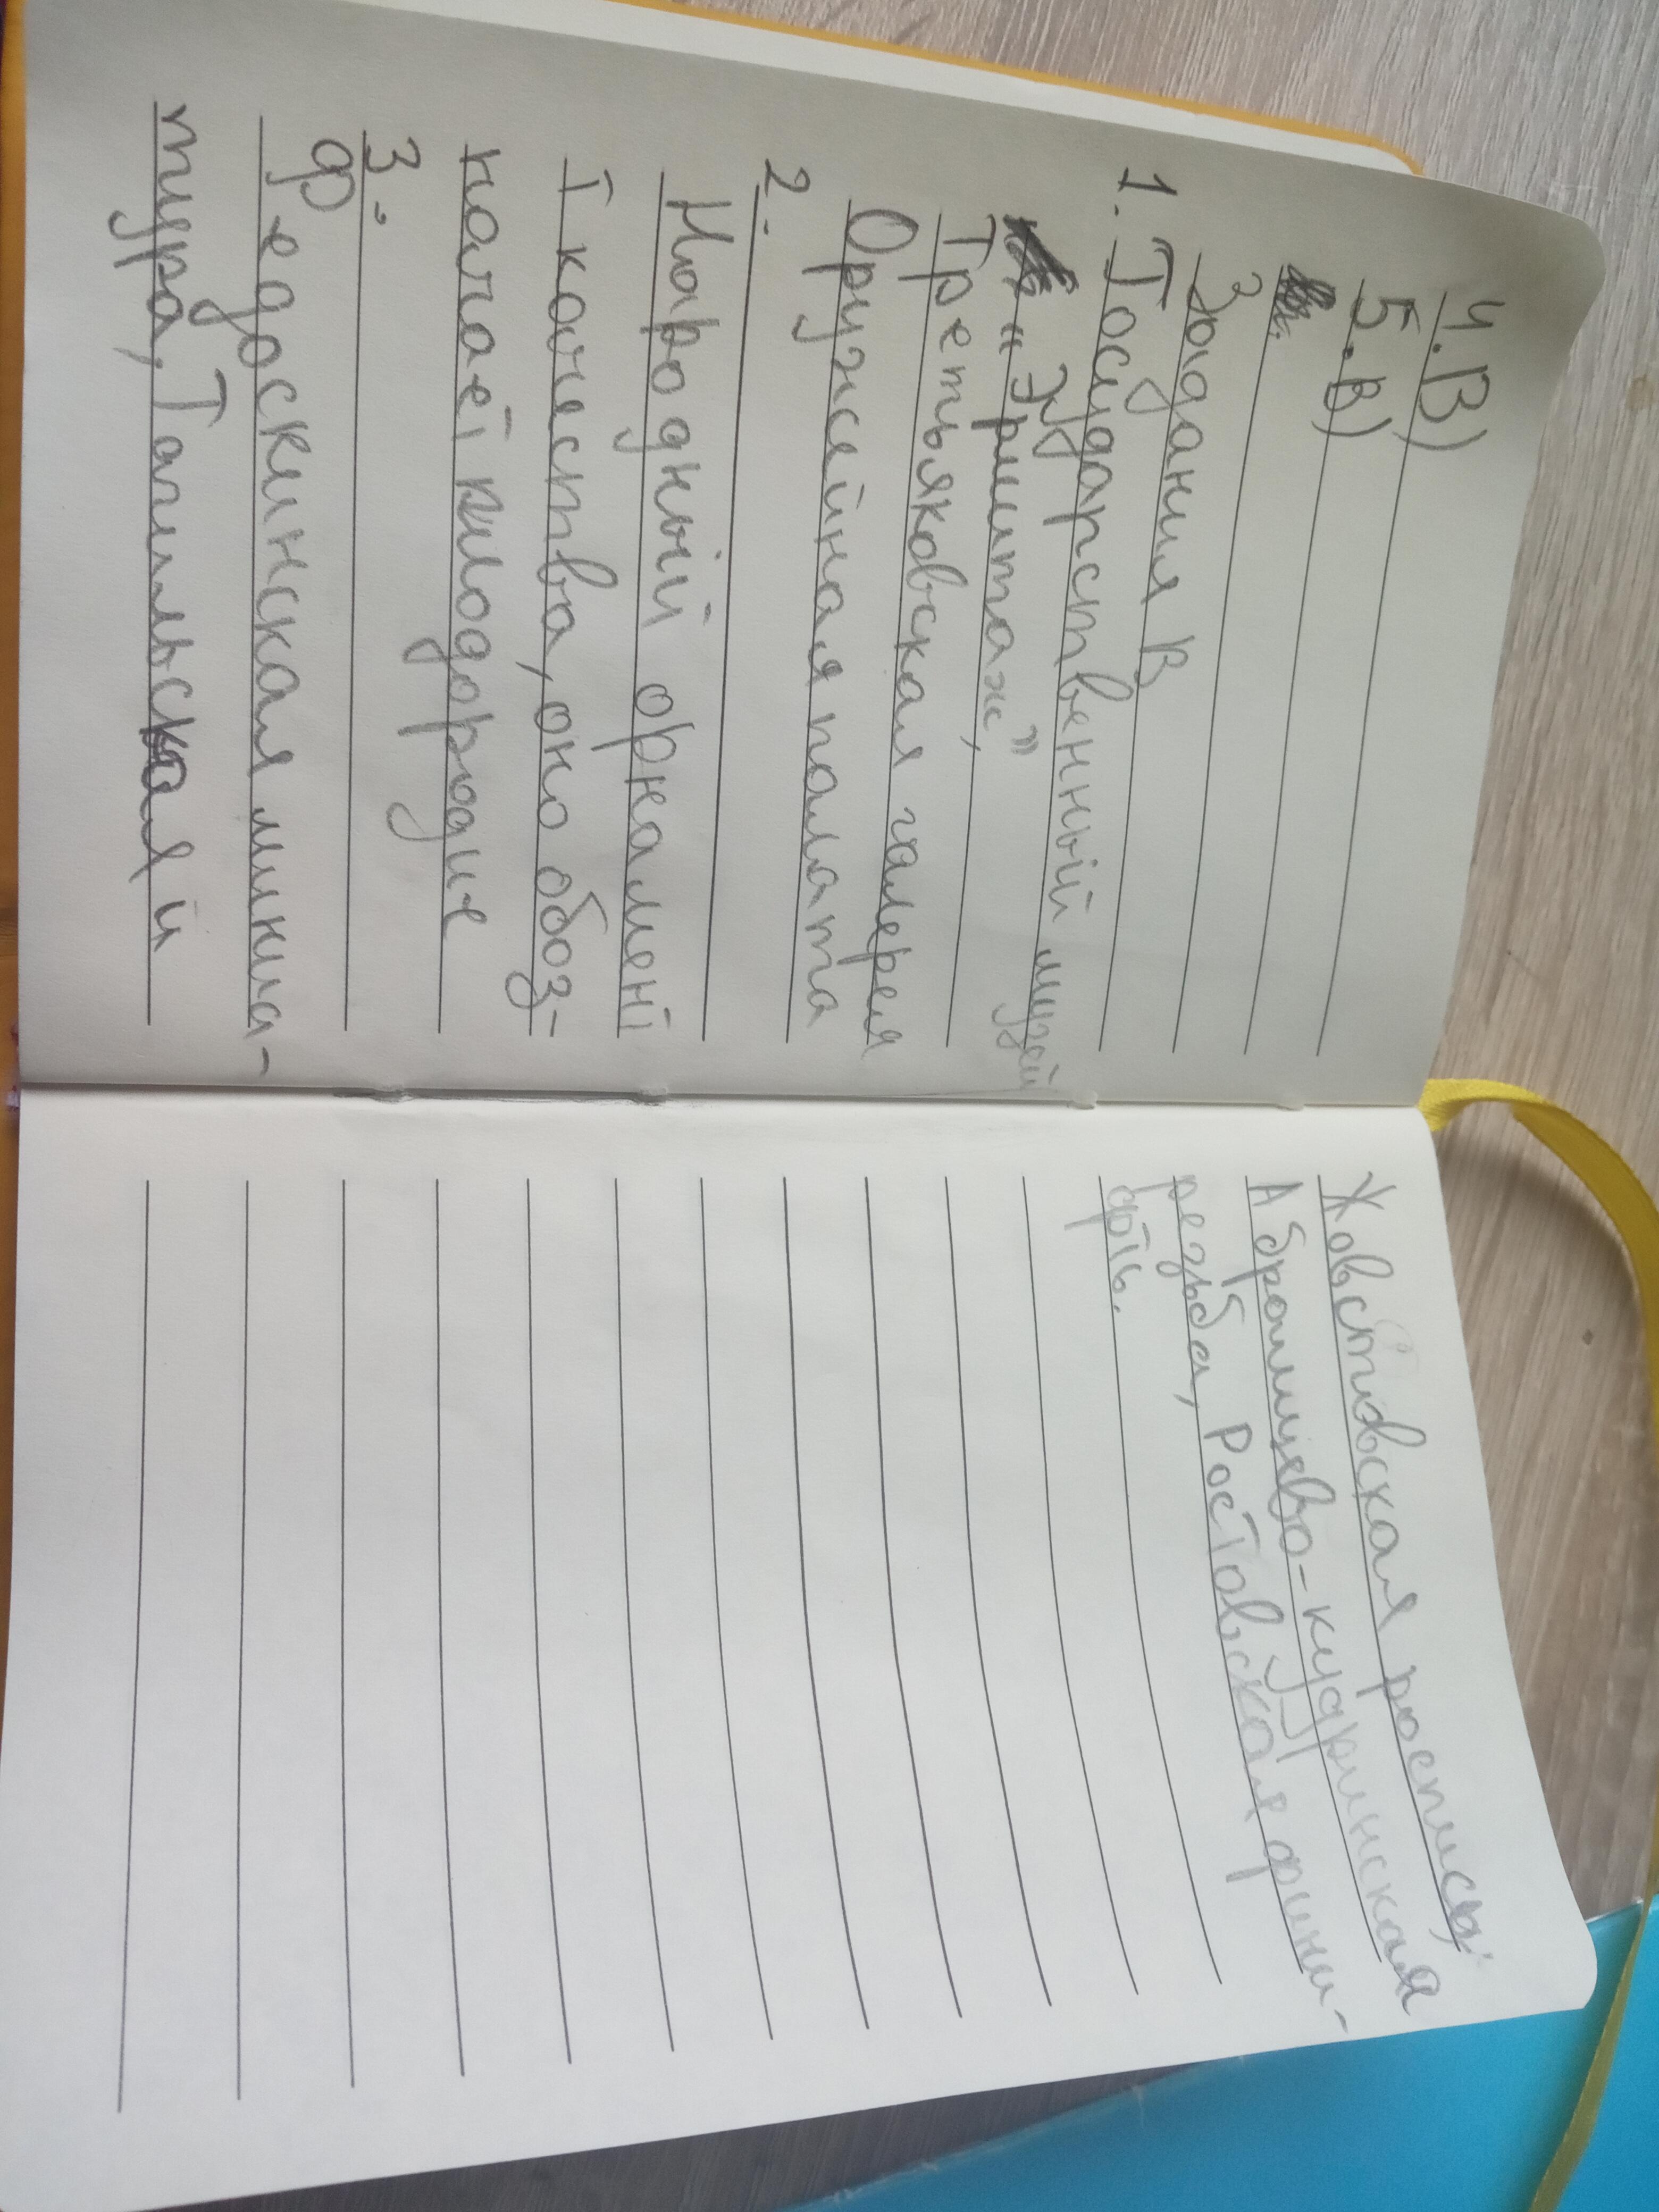 4. В)
5. В)
Задания В
1. Государственный музей
"Эрмитаж",
Третьяковская галерея
Оружейная палата
2.
Народный орнамент
качества, оно обоз-
начает плодородие
3.
Федоскинская миниа-
тюра, Тагильская и
Жовстовская роспись,
Абрамцево-кудринская
резьба, Ростовская фини-
фть.